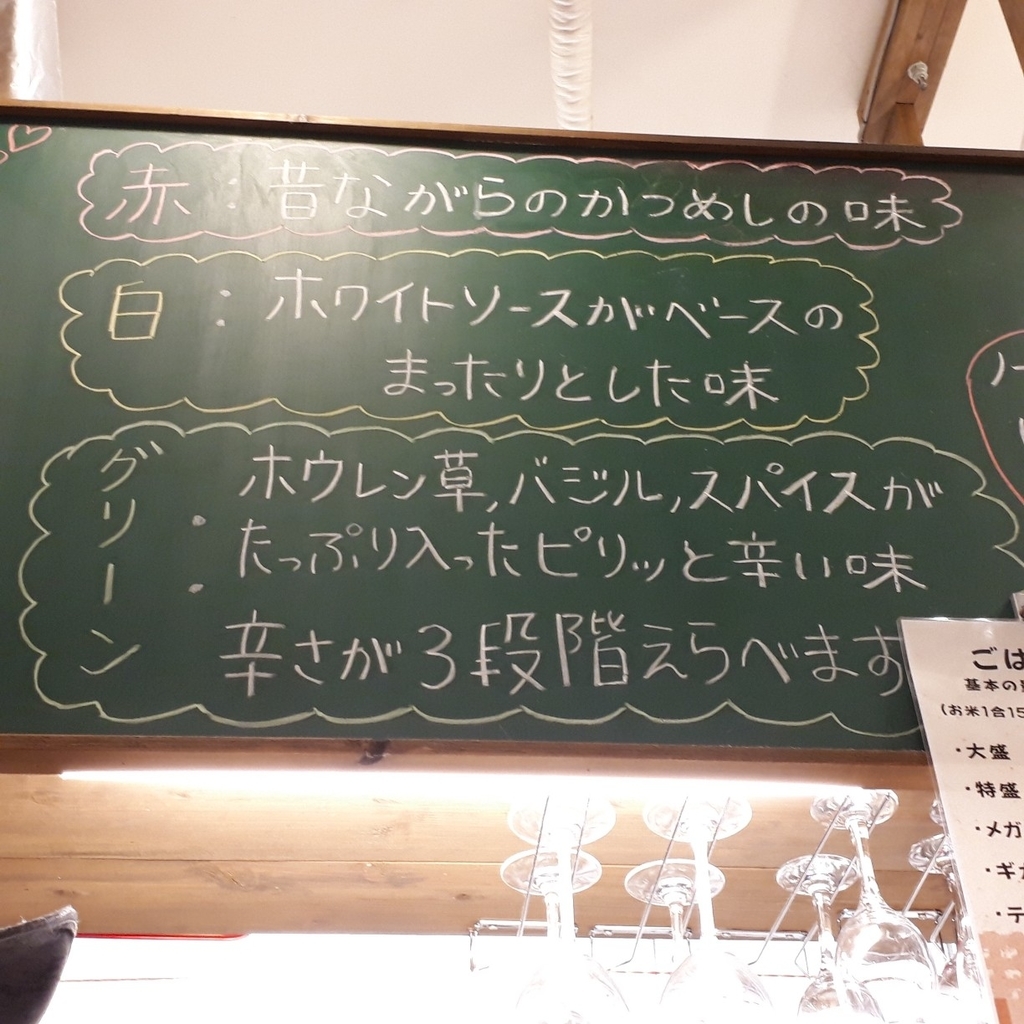 赤：昔ながらのかつめしの味
白：ホワイトソースがベースの
まったりとした味
グリーン：ホウレン草,バジル,スパイスが
たっぷり入ったピリッと辛い味
辛さが3段階えらべます
ごは
基本の
(お米1合15
・大盛
・特盛
・メガ
・ギガ
・テ